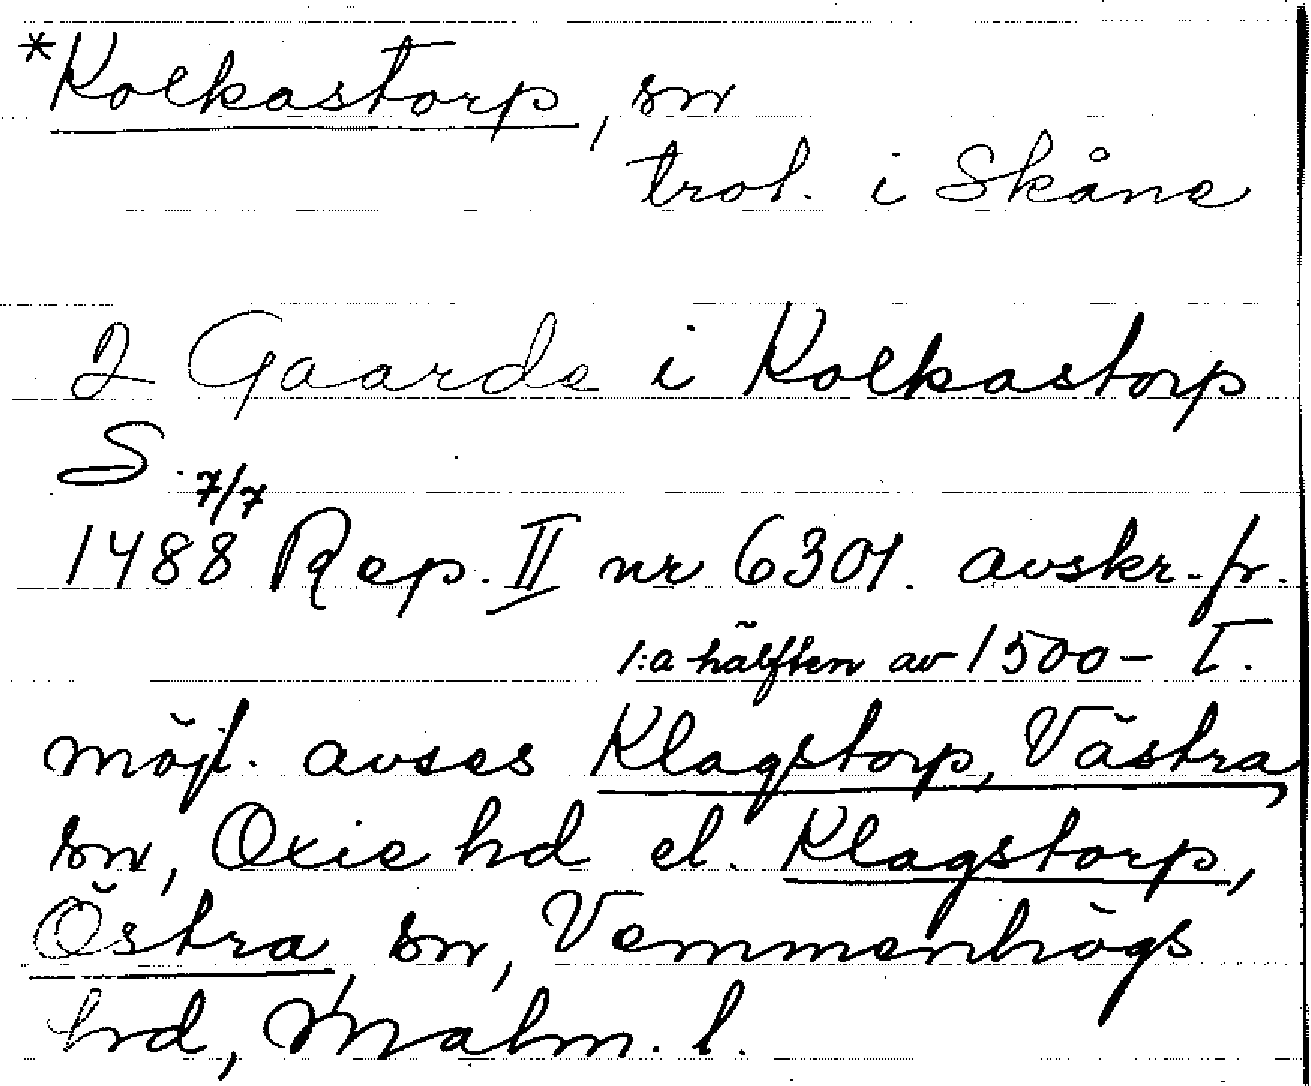 *Kolkastorp, sn
trol. i Skåne
2 Gaarde i Kolkastorp
S. 7/7
1488 Rep. II nr 6301. avskr. fr.
1:a hälften av 1500- T.
möjl. avses Klagstorp, Västra,
sn, Oxie hd el. Klagstorp,
Östra, sn, Vemmenhögs
hd, Malm. l.